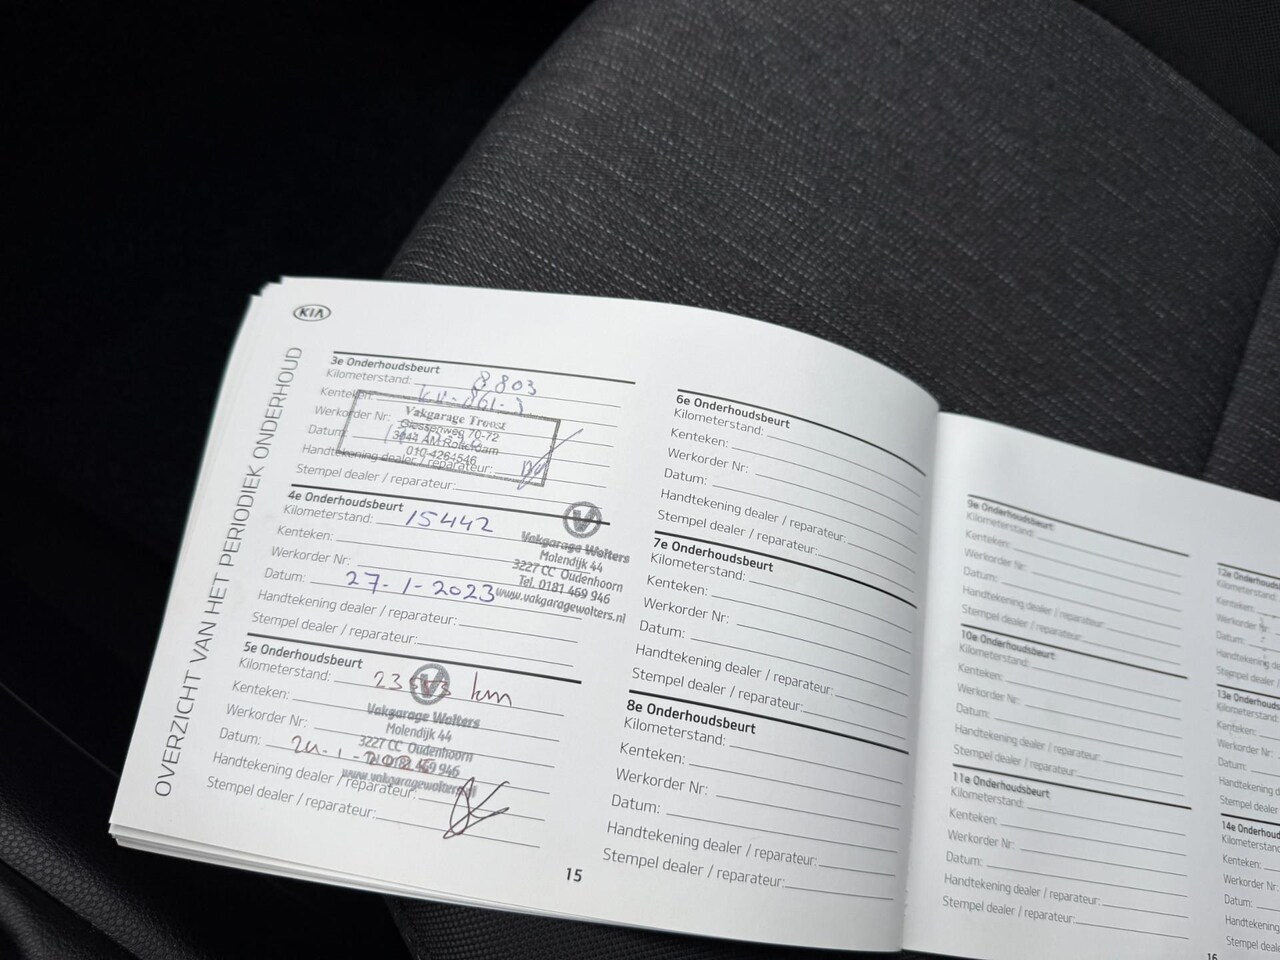 KIA
OVERZICHT VAN HET PERIODIEK ONDERHOUD
3e Onderhoudsbeurt
Kilometerstand: 8803
Kenteken:
Werkorder Nr:
Datum:
Handtekening dealer / reparateur:
Stempel dealer / reparateur:
Vakgarage Troost
Giessenweg 70-72
3044 AM Rotterdam
010-4264546
4e Onderhoudsbeurt
Kilometerstand: 15442
Kenteken:
Werkorder Nr:
Datum: 27-1-2023
Handtekening dealer / reparateur:
Stempel dealer / reparateur:
Vakgarage Wolters
Molendijk 44
3227 CC Oudenhoorn
Tel. 0181 469 946
www.vakgaragewolters.nl
5e Onderhoudsbeurt
Kilometerstand: km
Kenteken:
Werkorder Nr:
Datum:
Handtekening dealer / reparateur:
Stempel dealer / reparateur:
Vakgarage Wolters
Molendijk 44
3227 CC Oudenhoorn
Tel. 0181 469 946
www.vakgaragewolters.nl
15
6e Onderhoudsbeurt
Kilometerstand:
Kenteken:
Werkorder Nr:
Datum:
Handtekening dealer / reparateur:
Stempel dealer / reparateur:
7e Onderhoudsbeurt
Kilometerstand:
Kenteken:
Werkorder Nr:
Datum:
Handtekening dealer / reparateur:
Stempel dealer / reparateur:
8e Onderhoudsbeurt
Kilometerstand:
Kenteken:
Werkorder Nr:
Datum:
Handtekening dealer / reparateur:
Stempel dealer / reparateur:
9e Onderhoudsbeurt
Kilometerstand:
Kenteken:
Werkorder Nr:
Datum:
Handtekening dealer / reparateur:
Stempel dealer / reparateur:
10e Onderhoudsbeurt
Kilometerstand:
Kenteken:
Werkorder Nr:
Datum:
Handtekening dealer / reparateur:
Stempel dealer / reparateur:
11e Onderhoudsbeurt
Kilometerstand:
Kenteken:
Werkorder Nr:
Datum:
Handtekening dealer / reparateur:
Stempel dealer / reparateur:
12e Onderhouds
Kilometerstand:
Kenteken:
Werkorder Nr:
Datum:
Handtekening d
Stempel dealer /
13e Onderhouds
Kilometerstand:
Kenteken:
Werkorder Nr:
Datum:
Handtekening d
Stempel dealer /
14e Onderhoud
Kilometerstand
Kenteken:
Werkorder Nr:
Datum:
Handtekening
Stempel deale
16